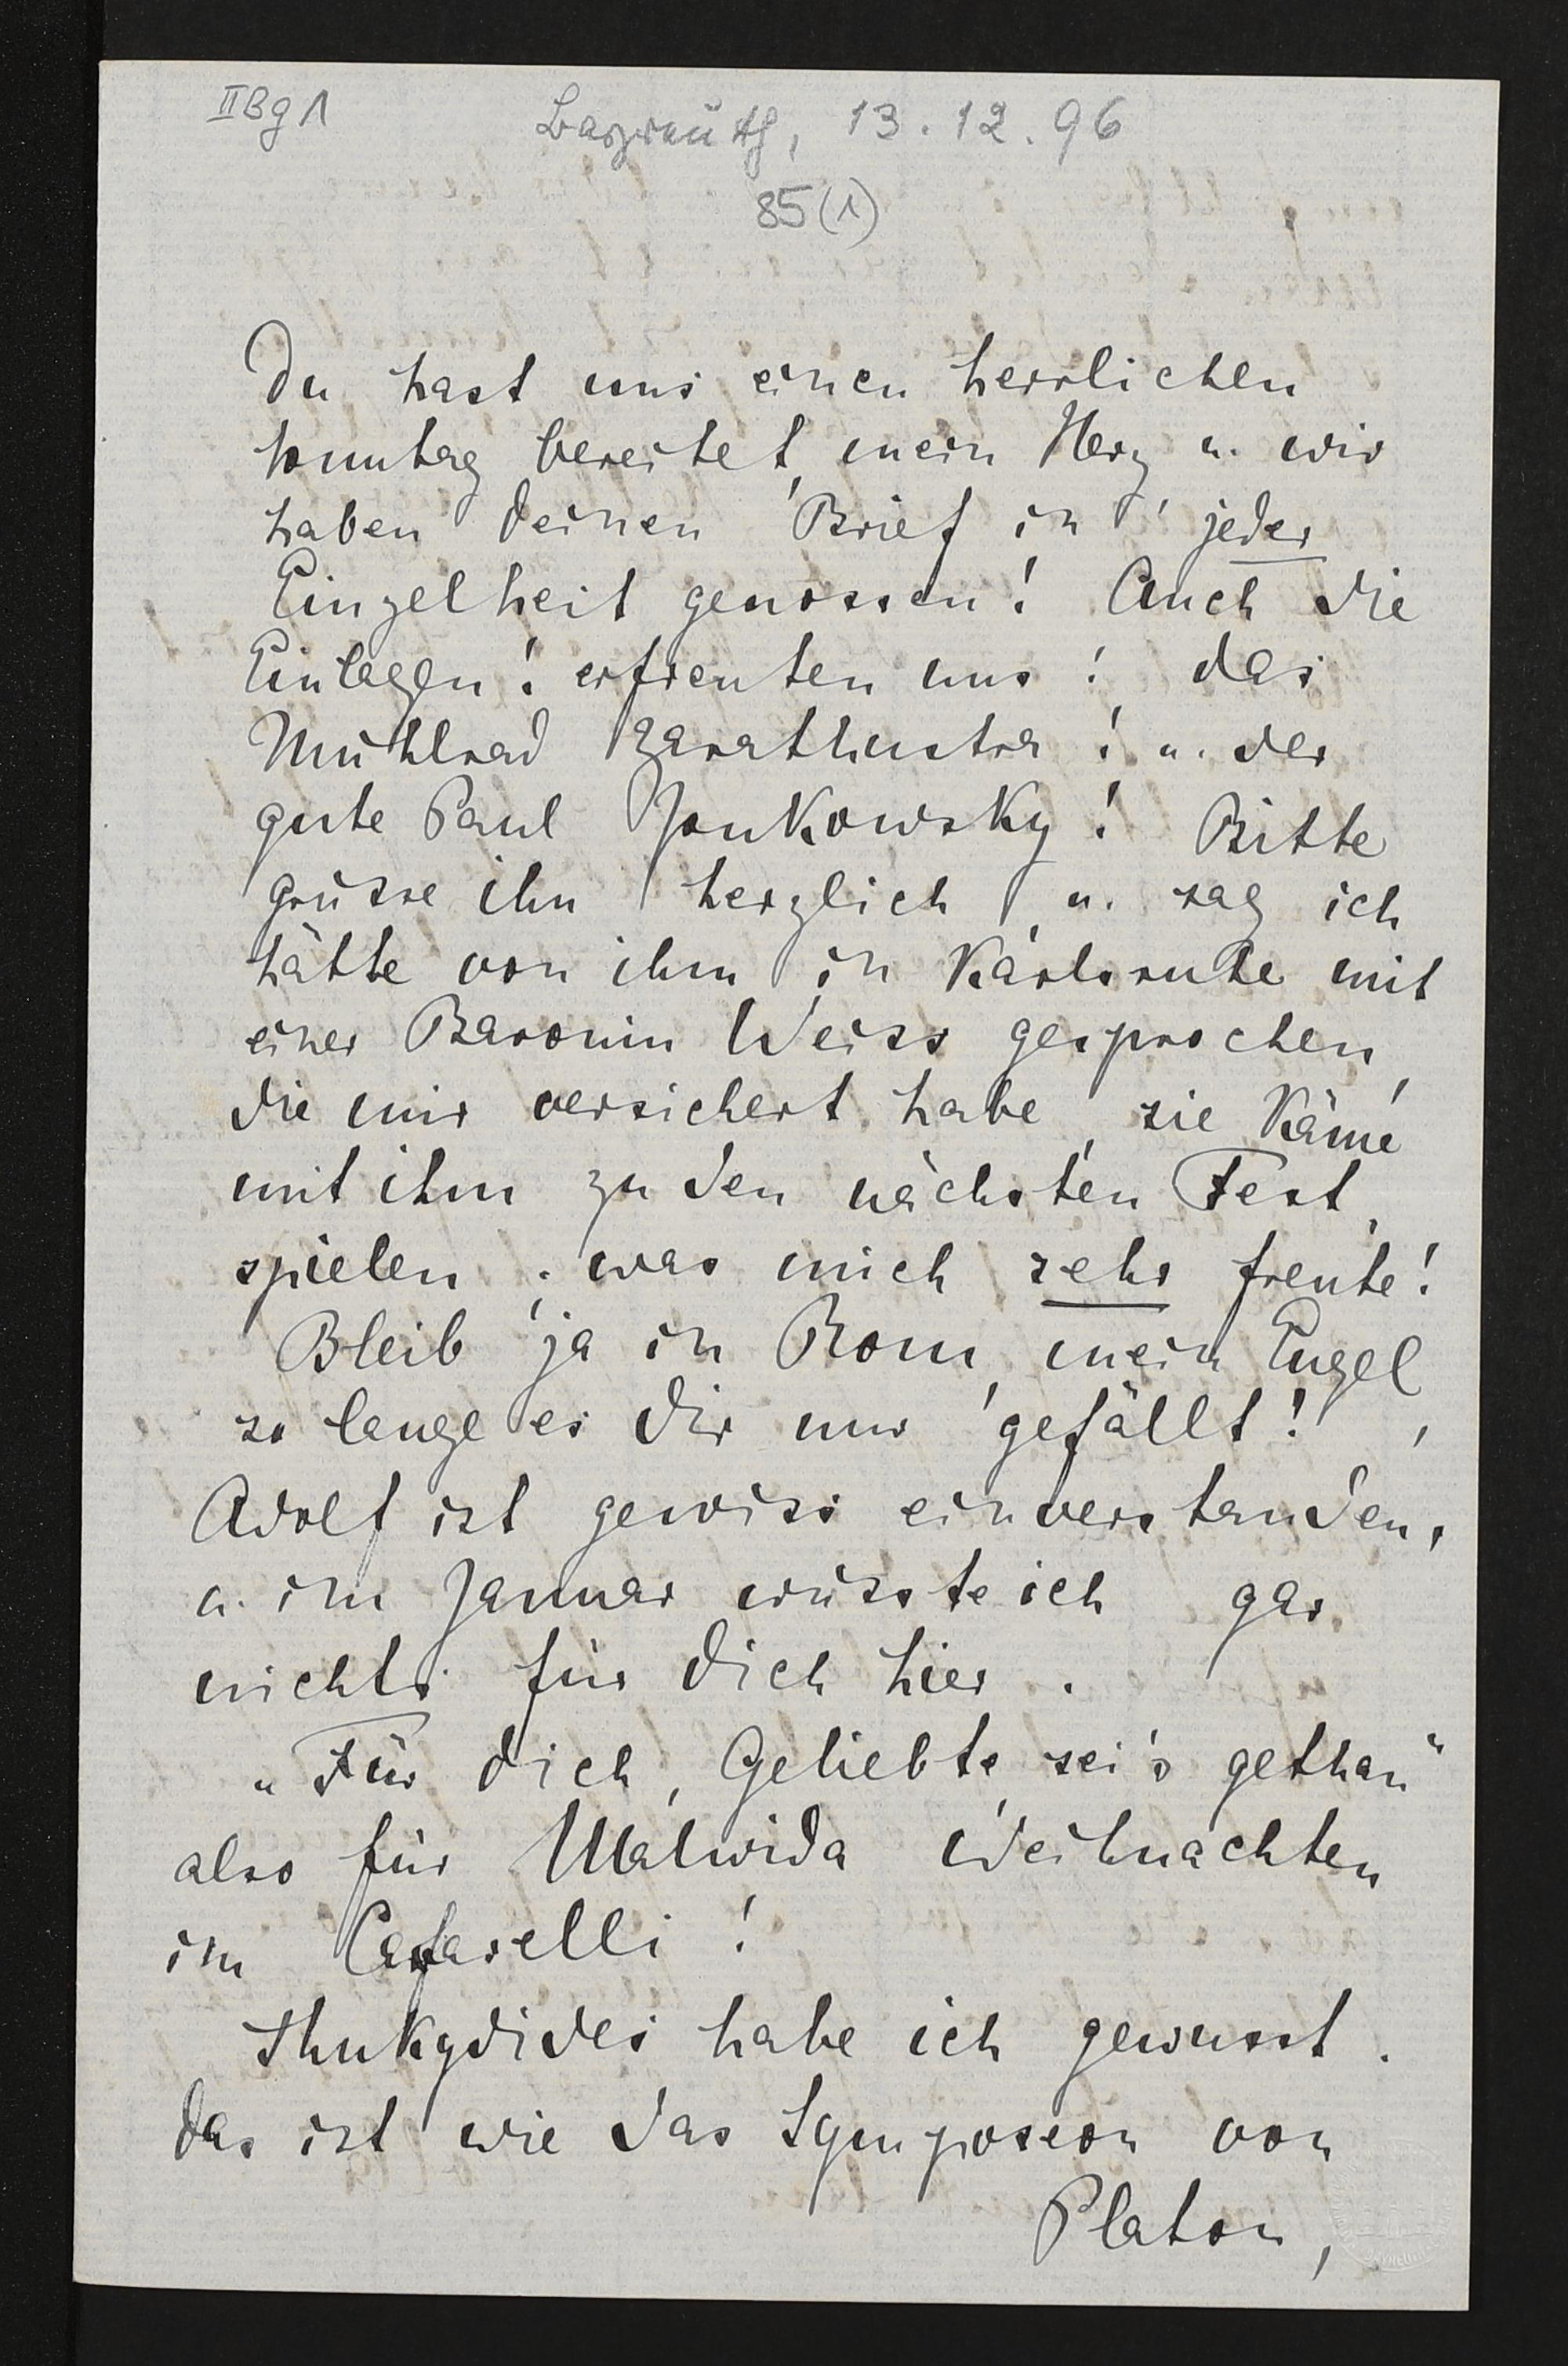 II Bg 1
Bayreuth, 13.12.96
85(1)
Du hast uns einen herrlichen
Sonntag bereitet, mein Herz u. wir
haben deinen Brief in jeder
Einzelheit genossen! Auch die
Einlagen! erfreuten uns! das
Mühlrad Zarathustra! u. der
gute Paul Joukowsky! Bitte
grüsse ihn herzlich, u. sag ich
hätte von ihm in Karlsruhe mit
einer Baronin Weiss gesprochen,
die mir versichert habe, sie käme
mit ihm zu den nächsten Fest,
spielen; was mich sehr freute!
Bleib ja in Rom, mein Engel,
so lange es dir nur gefällt!
Adolf ist gewiss einverstanden,
u. im Januar wüsste ich gar
nichts für dich hier.
„Für dich, Geliebte, sei's gethan"
also für Malwida Weihnachten
im Cafarelli!
Thukydides habe ich gewusst.
das ist wie das Symposion von
Platon,